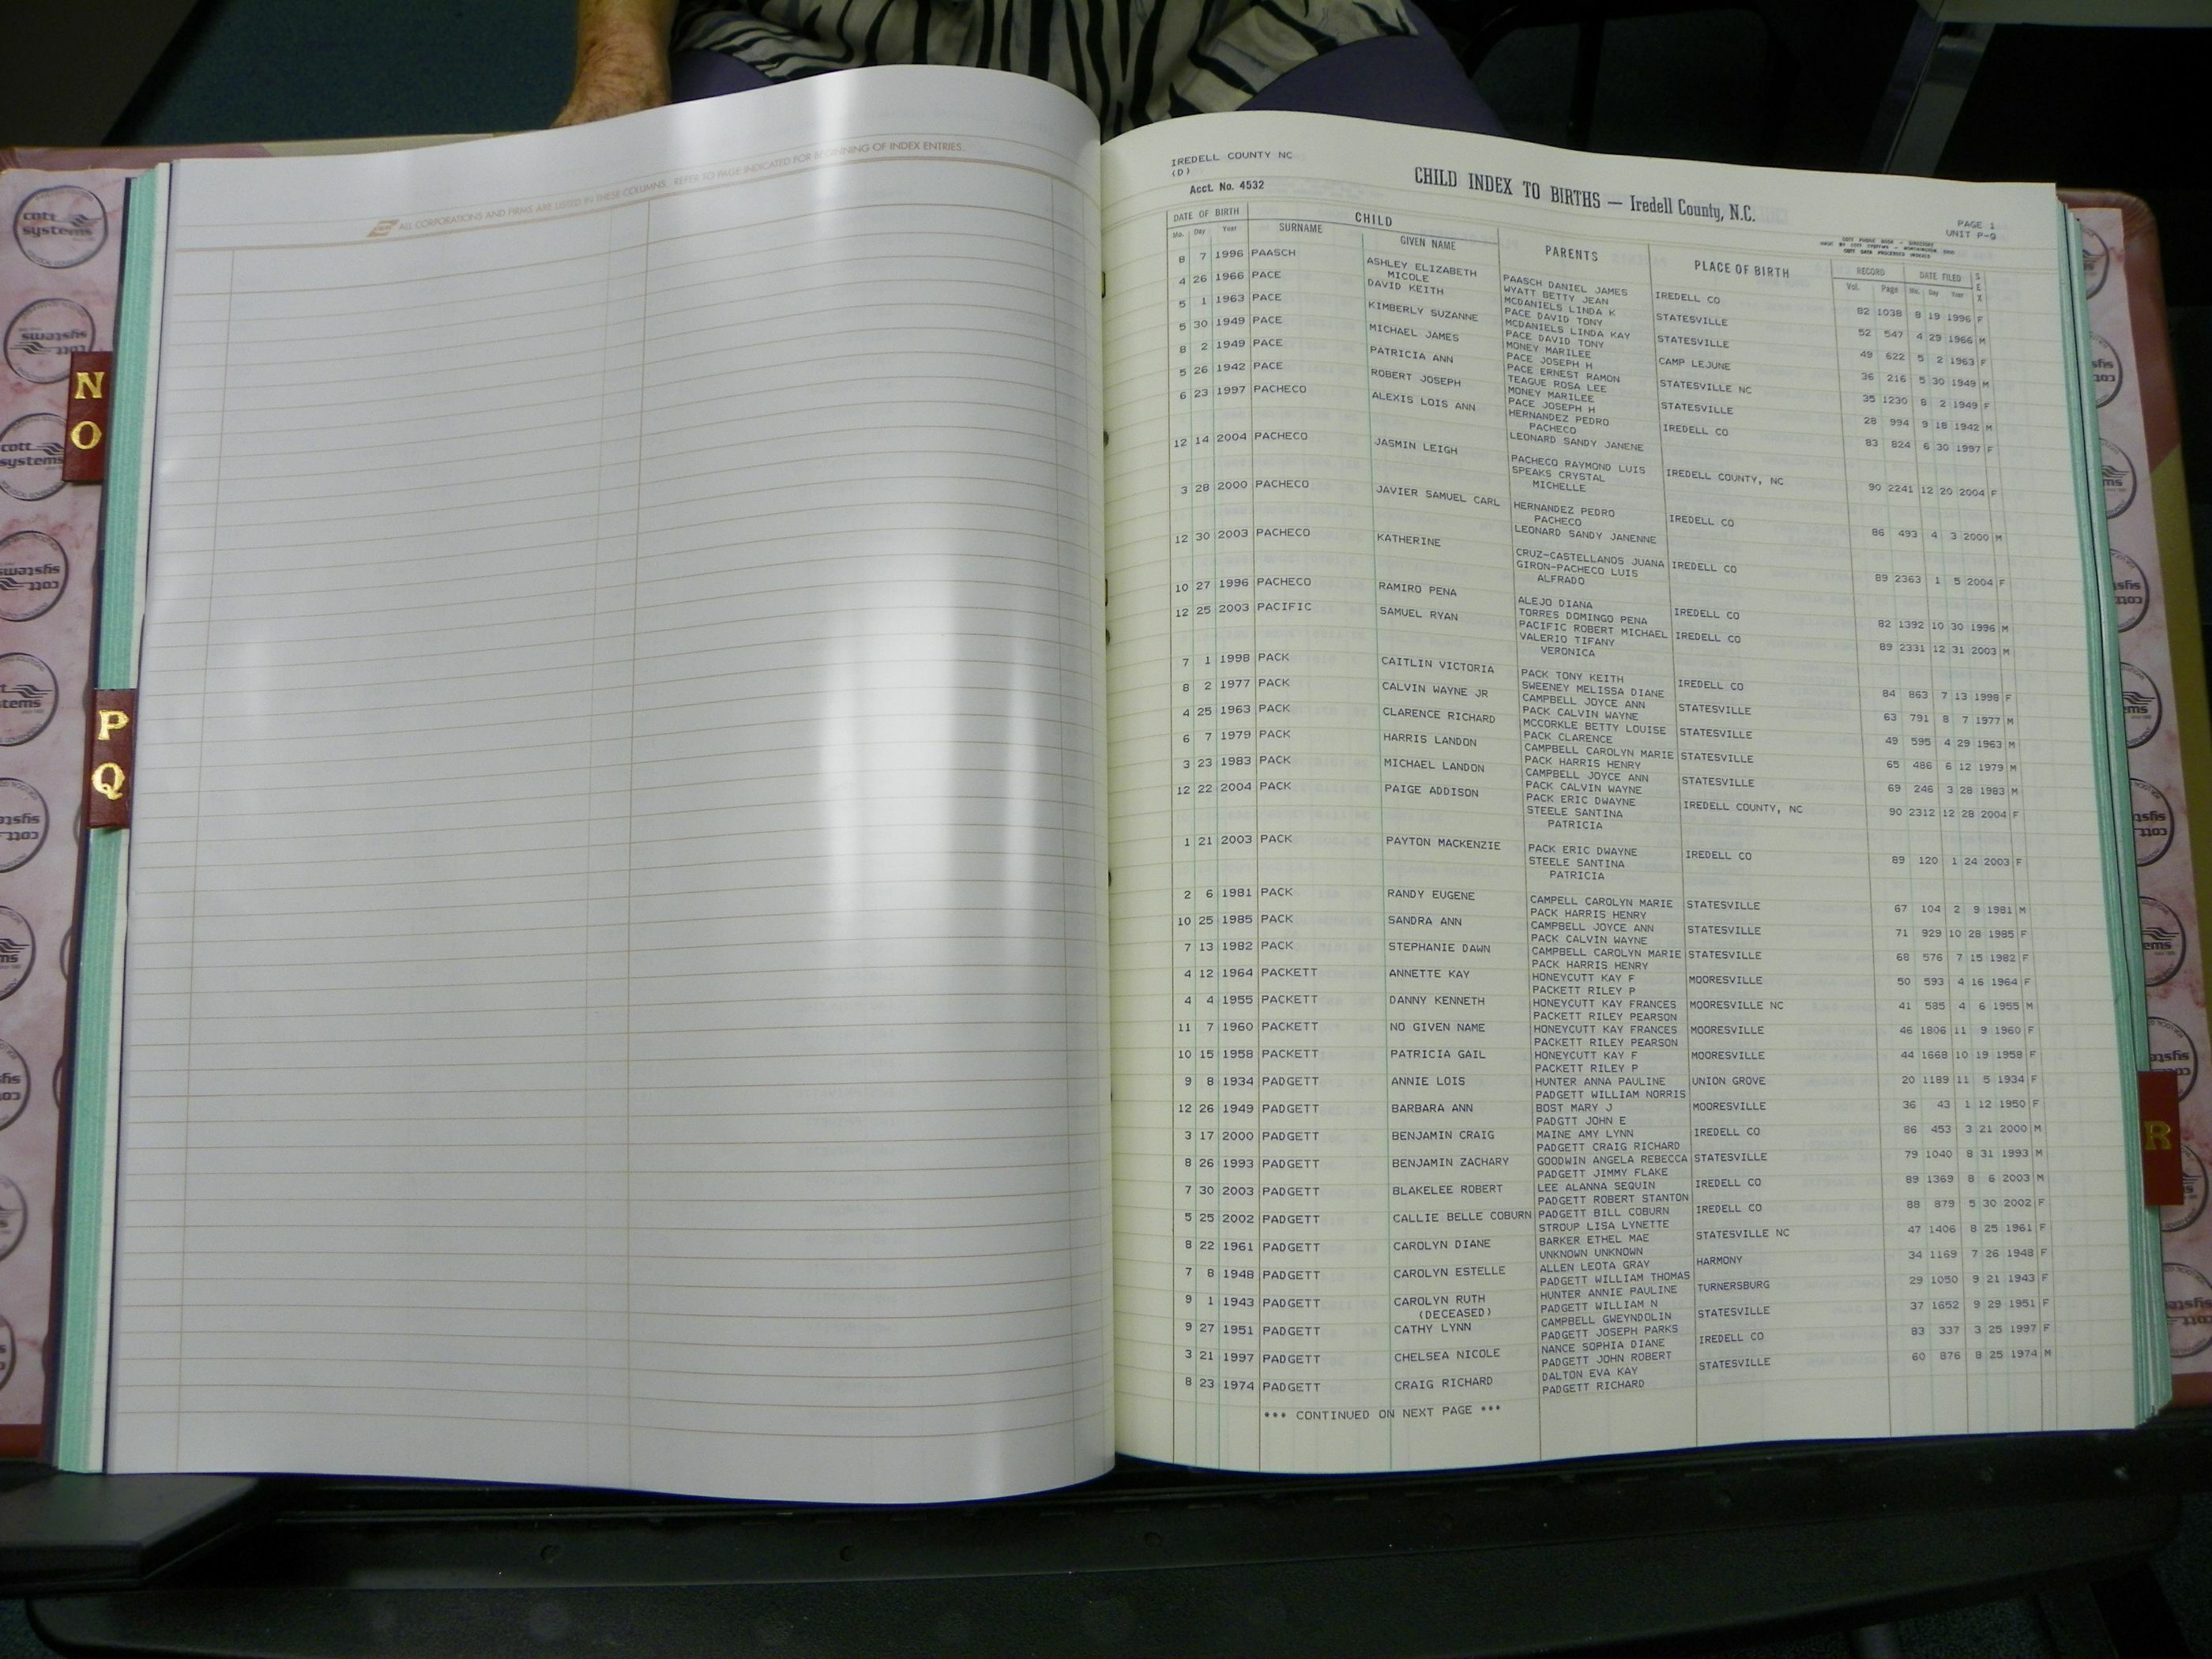 ALL CORPORATIONS AND FIRMS ARE LISTED IN THESE COLUMNS. REFER TO PAGE INDICATED FOR BEGINNING OF INDEX ENTRIES.
cott systems
N
O
P
Q
R
IREDELL COUNTY NC
(D)
Acct. No. 4532
CHILD INDEX TO BIRTHS — Iredell County, N.C.
PAGE 1
UNIT P-Q
DATE OF BIRTH CHILD PARENTS PLACE OF BIRTH RECORD DATE FILED SEX
Mo. Day Year SURNAME GIVEN NAME Vol. Page Mo. Day Year
8 7 1996 PAASCH ASHLEY ELIZABETH PAASCH DANIEL JAMES IREDELL CO 82 1038 8 19 1996 F
MICOLE WYATT BETTY JEAN
4 26 1966 PACE DAVID KEITH MCDANIELS LINDA K STATESVILLE 52 547 4 29 1966 M
PACE DAVID TONY
5 1 1963 PACE KIMBERLY SUZANNE MCDANIELS LINDA KAY STATESVILLE 49 622 5 2 1963 F
PACE DAVID TONY
5 30 1949 PACE MICHAEL JAMES MONEY MARILEE CAMP LEJUNE 36 216 5 30 1949 M
PACE JOSEPH H
8 2 1949 PACE PATRICIA ANN PACE ERNEST RAMON STATESVILLE NC 35 1230 8 2 1949 F
TEAGUE ROSA LEE
5 26 1942 PACE ROBERT JOSEPH MONEY MARILEE STATESVILLE 28 994 9 18 1942 M
PACE JOSEPH H
6 23 1997 PACHECO ALEXIS LOIS ANN HERNANDEZ PEDRO IREDELL CO 83 824 6 30 1997 F
PACHECO
LEONARD SANDY JANENE
12 14 2004 PACHECO JASMIN LEIGH PACHECO RAYMOND LUIS IREDELL COUNTY, NC 90 2241 12 20 2004 F
SPEAKS CRYSTAL
MICHELLE
3 28 2000 PACHECO JAVIER SAMUEL CARL HERNANDEZ PEDRO IREDELL CO 86 493 4 3 2000 M
PACHECO
LEONARD SANDY JANENNE
12 30 2003 PACHECO KATHERINE CRUZ-CASTELLANOS JUANA IREDELL CO 89 2363 1 5 2004 F
GIRON-PACHECO LUIS
ALFRADO
10 27 1996 PACHECO RAMIRO PENA ALEJO DIANA IREDELL CO 82 1392 10 30 1996 M
TORRES DOMINGO PENA
12 25 2003 PACIFIC SAMUEL RYAN PACIFIC ROBERT MICHAEL IREDELL CO 89 2331 12 31 2003 M
VALERIO TIFANY
VERONICA
7 1 1998 PACK CAITLIN VICTORIA PACK TONY KEITH IREDELL CO 84 863 7 13 1998 F
SWEENEY MELISSA DIANE
8 2 1977 PACK CALVIN WAYNE JR CAMPBELL JOYCE ANN STATESVILLE 63 791 8 7 1977 M
PACK CALVIN WAYNE
4 25 1963 PACK CLARENCE RICHARD MCCORKLE BETTY LOUISE STATESVILLE 49 595 4 29 1963 M
PACK CLARENCE
6 7 1979 PACK HARRIS LANDON CAMPBELL CAROLYN MARIE STATESVILLE 65 486 6 12 1979 M
PACK HARRIS HENRY
3 23 1983 PACK MICHAEL LANDON CAMPBELL JOYCE ANN STATESVILLE 69 246 3 28 1983 M
PACK CALVIN WAYNE
12 22 2004 PACK PAIGE ADDISON PACK ERIC DWAYNE IREDELL COUNTY, NC 90 2312 12 28 2004 F
STEELE SANTINA
PATRICIA
1 21 2003 PACK PAYTON MACKENZIE PACK ERIC DWAYNE IREDELL CO 89 120 1 24 2003 F
STEELE SANTINA
PATRICIA
2 6 1981 PACK RANDY EUGENE CAMPELL CAROLYN MARIE STATESVILLE 67 104 2 9 1981 M
PACK HARRIS HENRY
10 25 1985 PACK SANDRA ANN CAMPBELL JOYCE ANN STATESVILLE 71 929 10 28 1985 F
PACK CALVIN WAYNE
7 13 1982 PACK STEPHANIE DAWN CAMPBELL CAROLYN MARIE STATESVILLE 68 576 7 15 1982 F
PACK HARRIS HENRY
4 12 1964 PACKETT ANNETTE KAY HONEYCUTT KAY F MOORESVILLE 50 593 4 16 1964 F
PACKETT RILEY P
4 4 1955 PACKETT DANNY KENNETH HONEYCUTT KAY FRANCES MOORESVILLE NC 41 585 4 6 1955 M
PACKETT RILEY PEARSON
11 7 1960 PACKETT NO GIVEN NAME HONEYCUTT KAY FRANCES MOORESVILLE 46 1806 11 9 1960 F
PACKETT RILEY PEARSON
10 15 1958 PACKETT PATRICIA GAIL HONEYCUTT KAY F MOORESVILLE 44 1668 10 19 1958 F
PACKETT RILEY P
9 8 1934 PADGETT ANNIE LOIS HUNTER ANNA PAULINE UNION GROVE 20 1189 11 5 1934 F
PADGETT WILLIAM NORRIS
12 26 1949 PADGETT BARBARA ANN BOST MARY J MOORESVILLE 36 43 1 12 1950 F
PADGTT JOHN E
3 17 2000 PADGETT BENJAMIN CRAIG MAINE AMY LYNN IREDELL CO 86 453 3 21 2000 M
PADGETT CRAIG RICHARD
8 26 1993 PADGETT BENJAMIN ZACHARY GOODWIN ANGELA REBECCA STATESVILLE 79 1040 8 31 1993 M
PADGETT JIMMY FLAKE
7 30 2003 PADGETT BLAKELEE ROBERT LEE ALANNA SEQUIN IREDELL CO 89 1369 8 6 2003 M
PADGETT ROBERT STANTON
5 25 2002 PADGETT CALLIE BELLE COBURN PADGETT BILL COBURN IREDELL CO 88 879 5 30 2002 F
STROUP LISA LYNETTE
8 22 1961 PADGETT CAROLYN DIANE BARKER ETHEL MAE STATESVILLE NC 47 1406 8 25 1961 F
UNKNOWN UNKNOWN
7 8 1948 PADGETT CAROLYN ESTELLE ALLEN LEOTA GRAY HARMONY 34 1169 7 26 1948 F
PADGETT WILLIAM THOMAS
9 1 1943 PADGETT CAROLYN RUTH HUNTER ANNIE PAULINE TURNERSBURG 29 1050 9 21 1943 F
(DECEASED) PADGETT WILLIAM N
9 27 1951 PADGETT CATHY LYNN CAMPBELL GWEYNDOLIN STATESVILLE 37 1652 9 29 1951 F
PADGETT JOSEPH PARKS
3 21 1997 PADGETT CHELSEA NICOLE NANCE SOPHIA DIANE IREDELL CO 83 337 3 25 1997 F
PADGETT JOHN ROBERT
8 23 1974 PADGETT CRAIG RICHARD DALTON EVA KAY STATESVILLE 60 876 8 25 1974 M
PADGETT RICHARD
*** CONTINUED ON NEXT PAGE ***